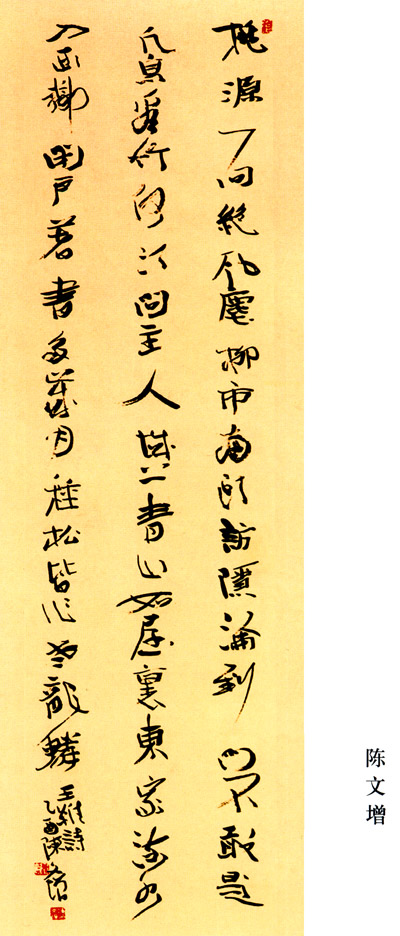 桃源一向絕風塵柳市南頭訪隱淪到門不敢題
凡鳥看竹何須問主人城上青山如屋裏東家流水
入西鄰閉戶著書多歲月種松皆作老龍鱗
王維詩
乙酉陳文增
陈文增